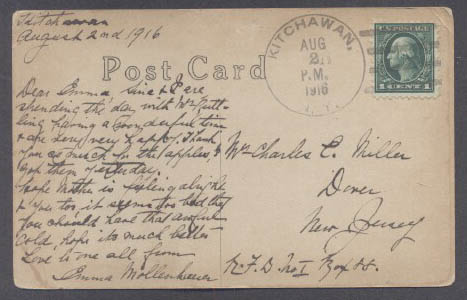 Kitchawan
August 2nd 1916
Post Card
KITCHAWAN,
AUG
2
P.M.
1916
N.Y.
U.S. POSTAGE
1 CENT 1
Dear Emma, Lina & I are
spending the day with Mr
ling having a wonderful time
& are very very happy. Thank
you so much for the apples, I
got them yesterday.
hope Mother is feeling alright
& you too, it seems too bad that
you should have that awful
cold, hope its much better
Love to one all from
Emma Mollenhauer
Mrs Charles C. Miller
Dover
New Jersey
R.F.D. No 1 Box